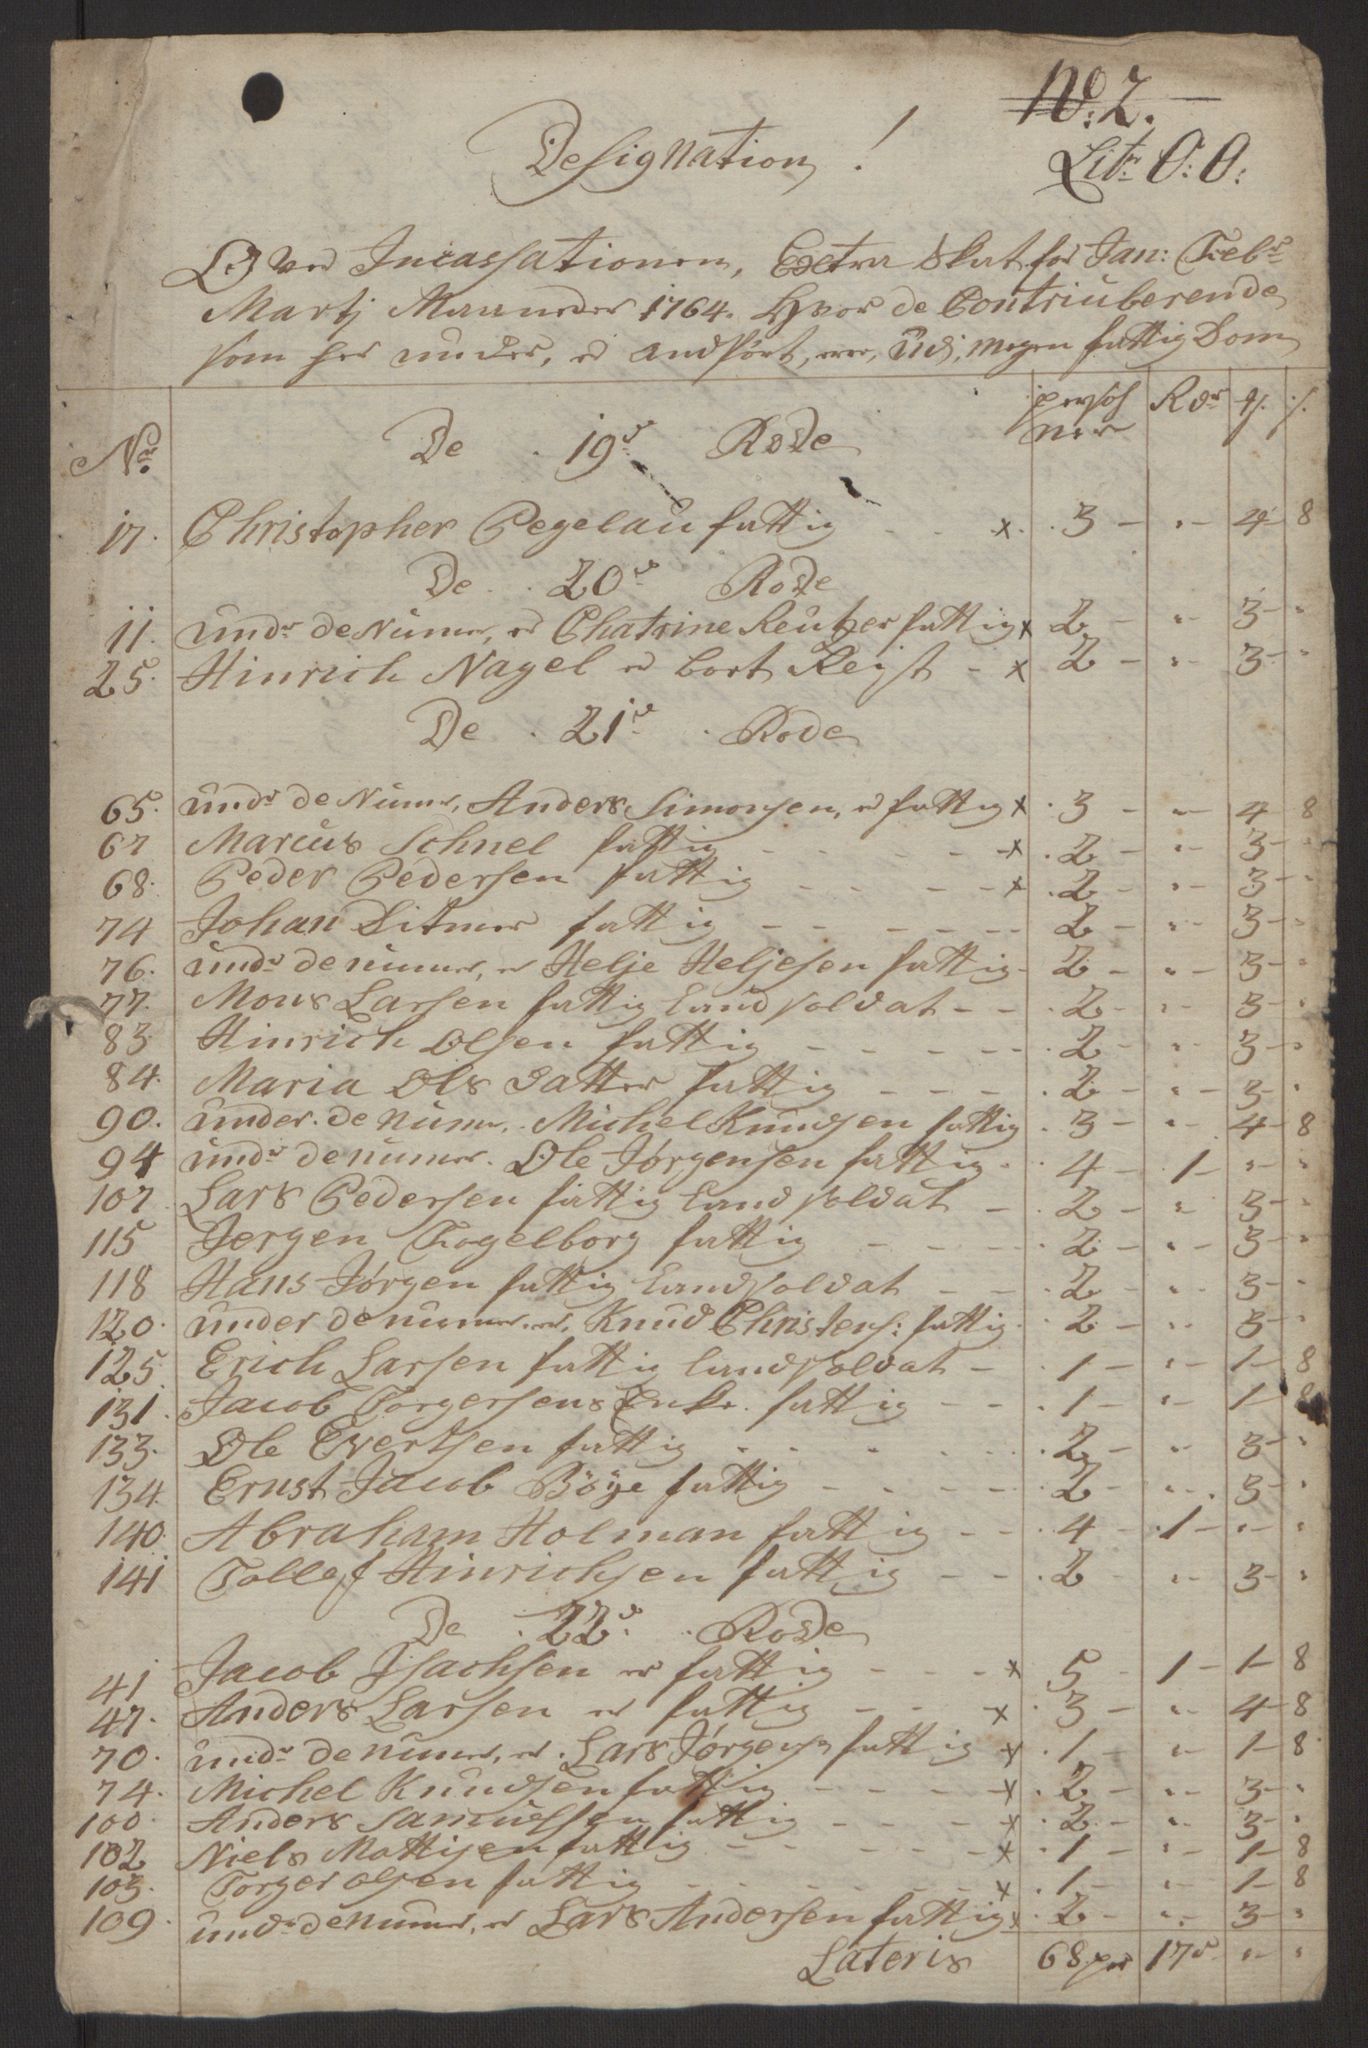 No: 2.
Litr O: O:
Designation !
Over Incassationen, Extra Skat for Jan: Febr
Martj Maaneder 1764. Hvor de Contriuberende
som her under, er andført, ere, udj, megen fattig Dom
Nr. persohner Rdr
De 19de Rode
17. Christopher Pegelau fattig - - x. 3 - " - 4 - 8
De 20de Rode
11. undr de Numer, er Chatrine Reutzer fattig x 2 - " - 3 - "
25. Hinrich Nagel er bort Rejst - x 2 - " - 3 - "
De 21de Rode
65. undr de Numer, Anders Simonsen, er fattig x 3 - " - 4 - 8
67 Marcus Schnel fattig - - - x 2 - " - 3 - "
68. Peder Pedersen fattig - - - x 2 - " - 3 - "
74 Johan Ditmer fattig - - - 2 - " - 3 - "
76. undr de numer, er Helje Heljesen fattig - 2 - " - 3 - "
77. Mons Larsen fattig Landsoldat - - 2 - " - 3 - "
83. Hinrich Olsen fattig - - - 2 - " - 3 - "
84. Maria Ols Datter fattig - - - 2 - " - 3 - "
90. under de numer, Michel Knudsen fattig . 3 - " - 4 - 8
94 undr de numer. Ole Jørgensen fattig - 4 - 1 - " - "
107 Lars Pedersen fattig Landsoldat - 2 - " - 3 - "
115 Jergen Fogelborg fattig - - - 2 - " - 3 - "
118 Hans Jørgen fattig Landsoldat - - 2 - " - 3 - "
120. under de numer er, Knud Christens: fattig . 2 - " - 3 - "
125. Erich Larsen fattig Landsoldat - . 1 - " - 1 - 8
131. Jacob Torgersens Enke. fattig - - . 1 - " - 1 - 8
133. Ole Evertsen fattig - - - 2 - " - 3 - "
134. Ernst Jacob Böÿe fattig - - - 2 - " - 3 - "
140. Abraham Holman fattig - - . 4 - 1 - " - "
141 Tollef Hinrichsen fattig - - . 2 " - 3 - "
De 22de Rode
41 Jacob Isachsen er fattig - - - x 5 - 1 - 1 - 8
47. Anders Larsen er fattig - - x . 3 - " - 4 - 8
70. undr de numer, er Lars Jørgens: fattig x . 1 - " - 1 - 8
74. Michel Knudsen fattig - - - x . 2 - " - 3 - "
100. Anders Samuelsen fattig - - - x . 2 - " - 3 - "
102 Niels Mattisen fattig - - - x . 1 - " - 1 - 8
103. Torger Olsen fattig - - - x . 1 - " - 1 - 8
109. undr de numer, er Lars Andersen fattig x . 2 - " - 3 - "
Lateris 68 per 17 r " - "